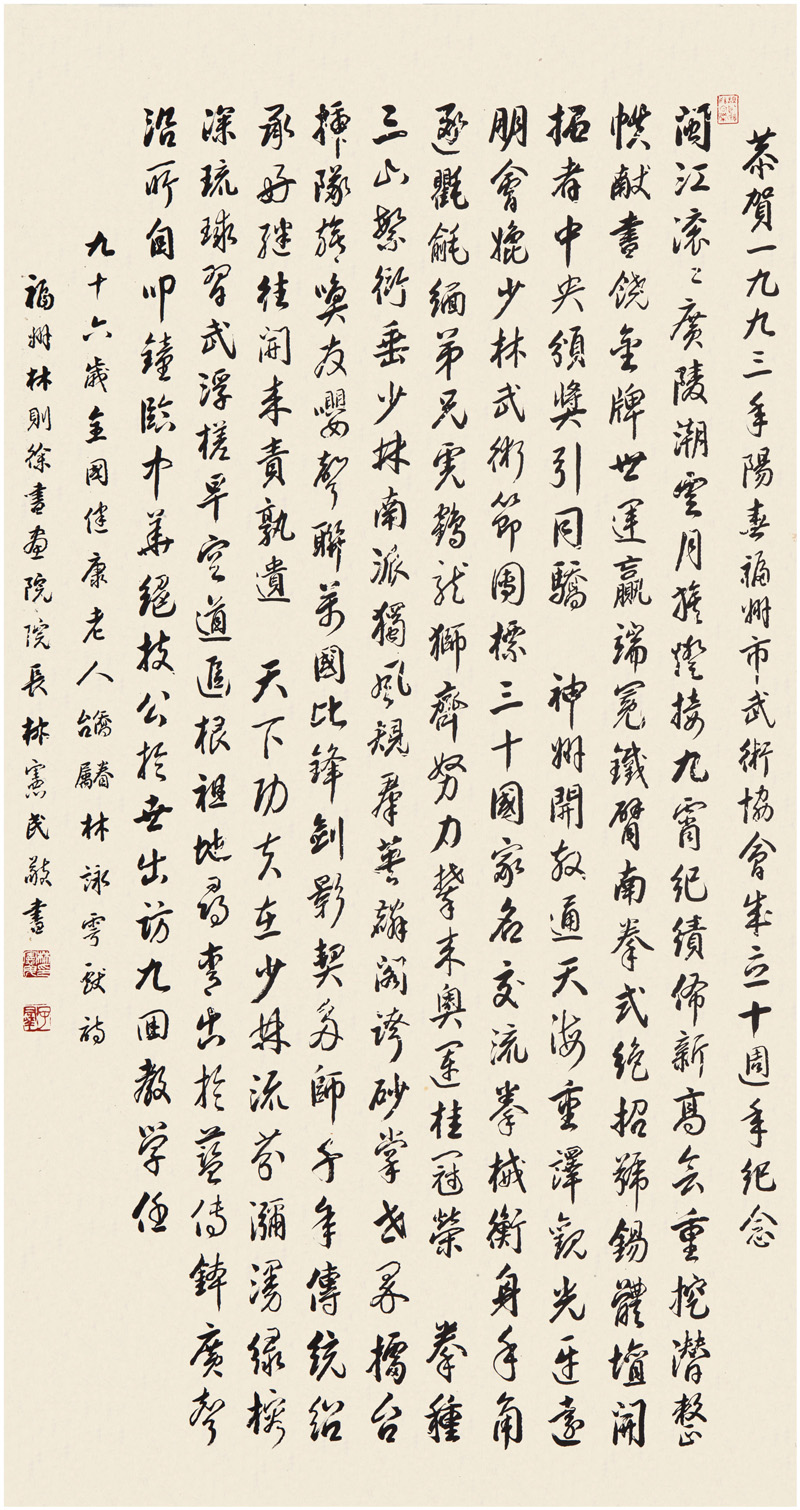 恭賀一九九三年陽春福州市武術協會成立十週年紀念
閩江滾〻廣陵潮雲月旌燈接九霄紀績佈新高會重挖潛整
帙献書饒金牌世運贏端冕鐵臂南拳式絶招號錫體壇開
拓者中央頒獎引同驕 神州開放通天海重譯觀光迓遠
朋會媲少林武術節團標三十國家名交流拳械衡身手角
逐氍毹緬弟兄虎鶴龍獅齊努力擎来奥運桂冠榮 拳種
三山繁衍垂少林南派獨風規羣英麟閣誇砂掌世界擂台
插隊旗喚友嚶嚶聲聯萬國比鋒劍影契多師千年傳統紹
承好繼往開来責孰遺 天下功夫在少林流芬瀰漫緑榕
深琉球習武浮槎早空道追根祖地尋青出於藍傳鉢廣聲
沿所自叩鐘臨中華絕技公於世出訪九囯教学任
九十六歲全國健康老人台屬僑眷林詠雩獻詩
福州林則徐書畫院院長林憲民敬書